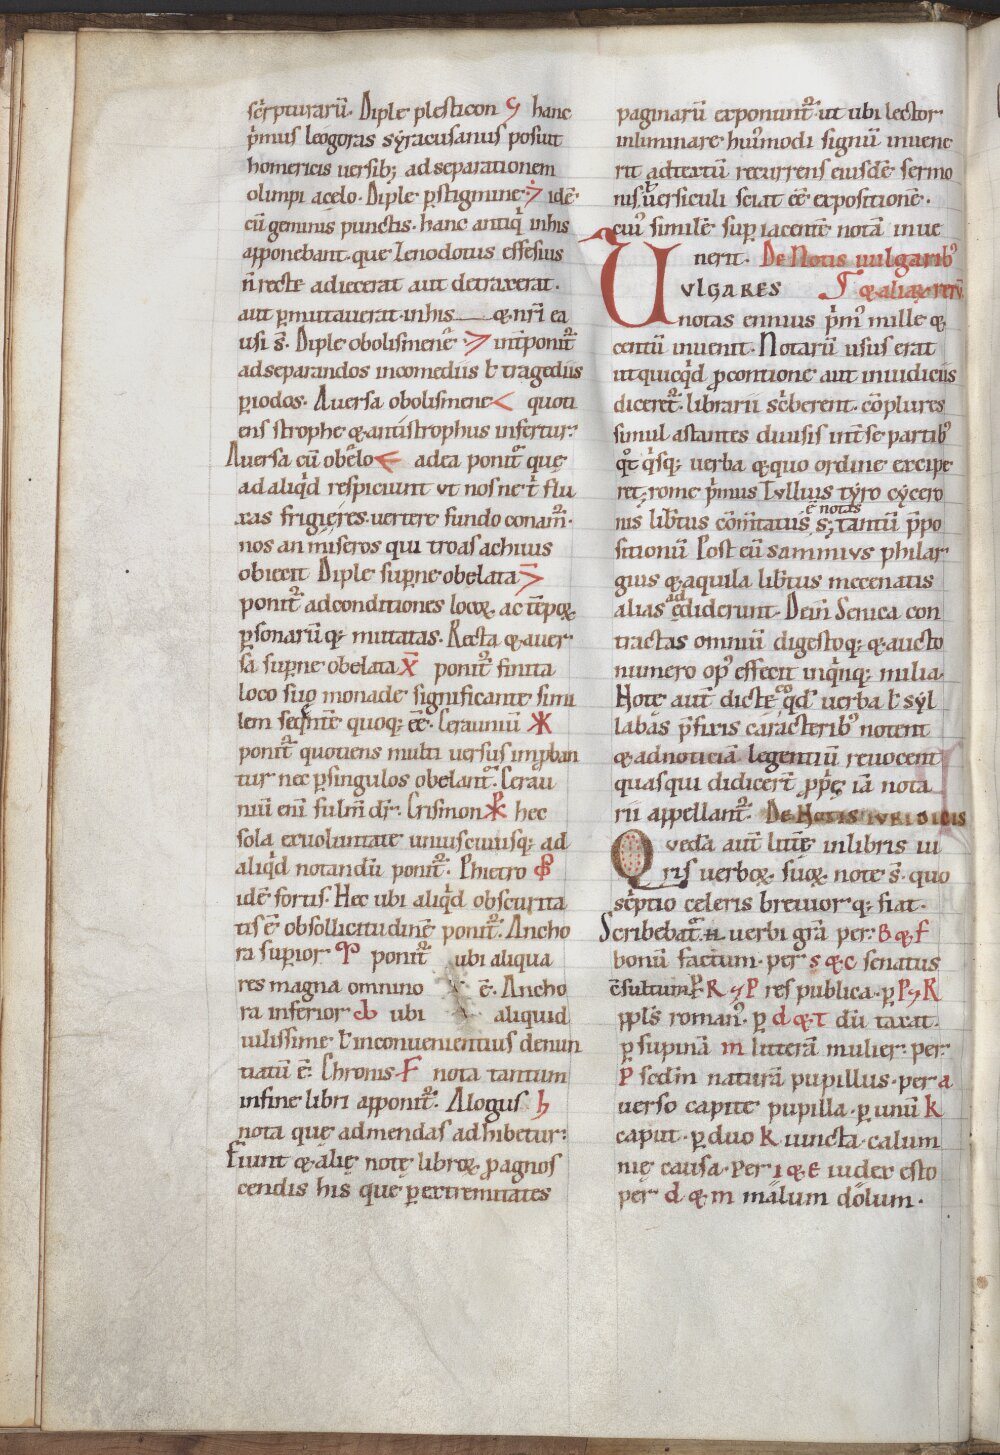 scͥpturarū. Diple plesticon hanc
pͥmus leogoras sẏracusanus posuit
homericis uersib; ad separationem
olimpi a celo. Diple p̱stigmine idē
cū geminis punctis. hanc antiqͥ in his
apponebant. que Zenodotus effesius
n̄ recte adiecerat aut detraxerat.
aut p̱mutauerat. in his & nr̄i ea
usi s̄. Diple obolismenē int̄ponit᷑
ad separandos in comediis ł tragediis
p̱iodos. Auersa obolismene < quoti
ens strophe & antistrophus infertur.
Auersa cū obelo adea ponit᷑ quę
ad aliqͥd respiciunt ut nosne t̄ flu
xas frigieres. uertere fundo conam᷑.
nos an miseros qui troas achiuis
obiecit Diple sup̱ne obelata
ponit᷑ ad conditiones locoꝝ. ac tēpoꝝ.
p̱sonarū q; mutatas. Recta & auer
sa sup̱ne obelata ponit᷑ finita
loco suo monade significante simi
lem seqn̄tē quoq; eē. Ceraunium
ponit᷑ quotiens multi uersus inp̱ban
tur nec p̱singulos obelant᷑. Cerau
niū eni fulm̄ dr̄. Crismon hec
sola ex uoluntate uniuscuiusq; ad
aliqͥd notandū ponit᷑. Phietro
idē fortis. Hec ubi aliqͥd obscurita
tis ē ob sollicitudinē ponit᷑. Ancho
ra sup̱ior ponit᷑ ubi aliqua
res magna omnino ē. Ancho
ra inferior ubi aliquid
uilissime ł inconuenientius denun
tiatū ē. Chronis nota tantum
in fine libri apponit᷑. Alogus
nota quę ad mendas adhibetur.
Fiunt & alię notę libroꝝ ꝓ agnos
cendis his quę p̱ extremitates
paginarū exponunt᷑. ut ubi lector
in liminare hui᾽modi signū inuene
rit ad textū recurrens eiusdē sermo
nis ł uersiculi sciat eē expositionē.
cui᾽ similē sup̱ iacentē notā inue
nerit. De Notis uulgarib᾽
VULGARES & aliaꝝ rerū
notas ennius pͥm᾽ mille &
centū inuenit. Notarū usus erat
ut quicqͥd ꝓ contione aut in iudiciis
diceret᷑. librarii scͥberent. cōplures
simul astantes diuisis int̄ se partib᾽
qͦt qͥsq; uerba & quo ordine excipe
ret; rome pͥmus Tullius tẏro cẏcero
nis lib̄tus cōm̄tatus ē notas s; tantū p̄po
sitionū Post eū sammius philar
gius & aquila lib̄tus mecenatis
alias ad ediderunt. Dein̄ Senica con
tractas omniū digestoq; & aucto
numero op᾽ effecit in qͥnq; milia.
Note aut̄ dictę eo qͦd uerba ł sẏl
labas p̄fixis caracterib᾽ notent
& ad noticiā legentiū reuocent
quas qui didicer̄t ꝓpͥę iā nota
rii appellant᷑. De Notis iuridicis
Quedā aut̄ litt̄ę in libris iu
ris uerboꝝ. suoꝝ. note s̄. quo
scͥptio celeris breuior q; fiat.
Scribebat᷑ n̄ uerbi grā per. B & F
bonū factum. per s & c senatus
ēsultum. P̱ R P res publica. p̱ P R
ppl̄s roman᾽. p̱ d & t dū taxat.
p̱ supinā m litterā mulier. per.
P sedm̄ naturā pupillus. per a
uerso capite pupilla. p̱ unū k
caput. p̱ duo k iuncta. calum
nię causa. Per. i & E iudex esto
per d & m malum dolum.